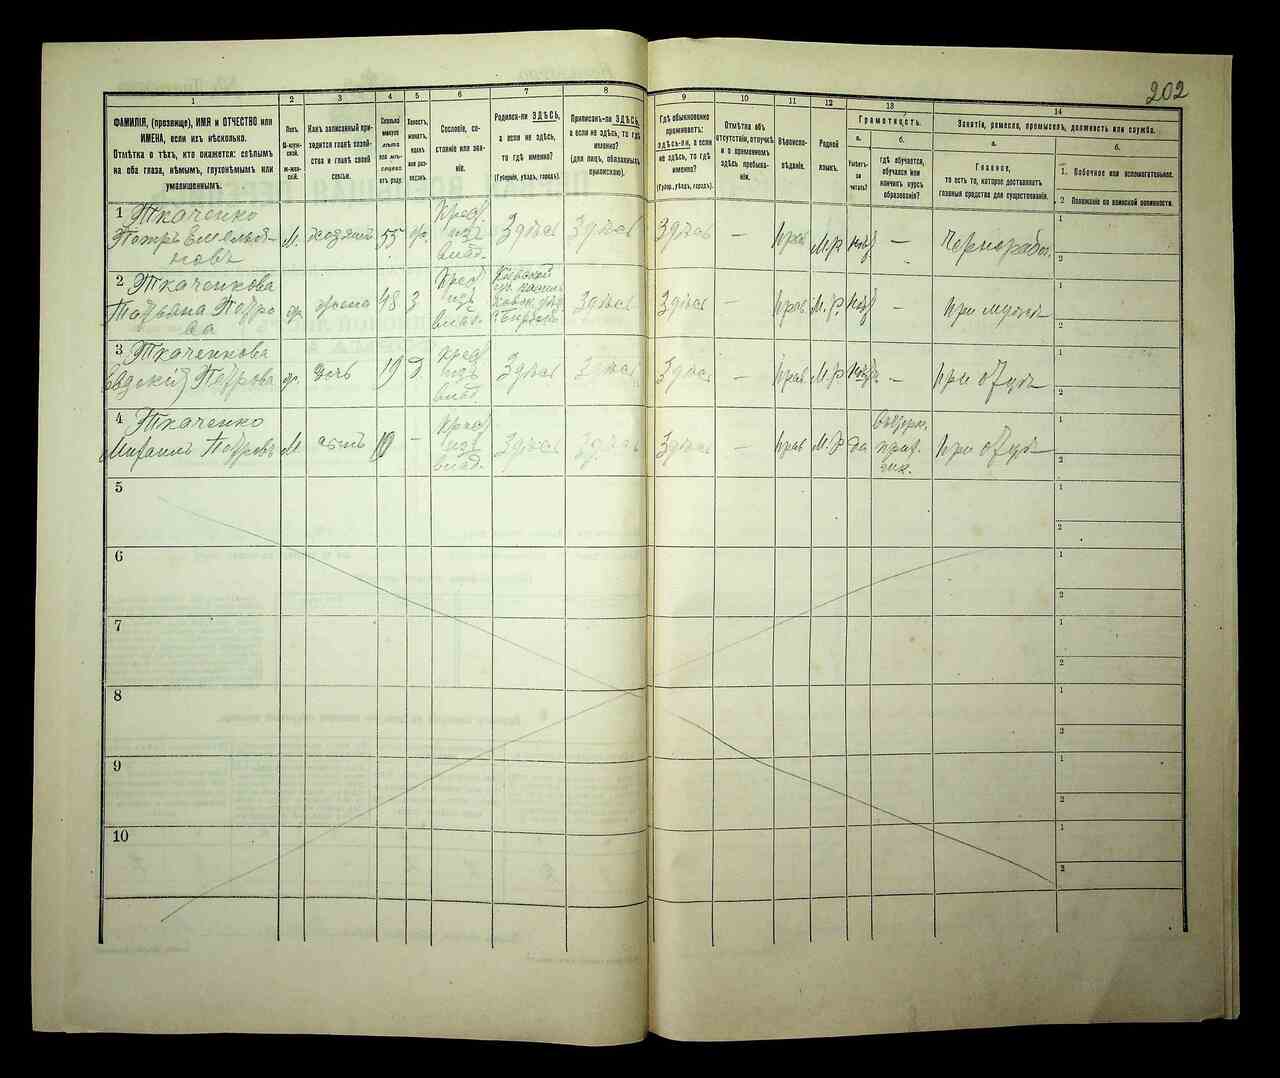 202
1 2 3 4 5 6 7 8 9 10 11 12 13 14
ФАМИЛІЯ, (прозвище), ИМЯ и ОТЧЕСТВО или
ИМЕНА, если ихъ нѣсколько.
Отмѣтка о тѣхъ, кто окажется: слѣпымъ
на оба глаза, нѣмымъ, глухонѣмымъ или
умалишеннымъ.
Полъ.
М-муж-
ской.
Ж-жен-
скій.
Какъ записанный при-
ходится главѣ хозяй-
ства и главѣ своей
семьи.
Сколько
минуло
лѣтъ
или мѣ-
сяцевъ
отъ роду.
Холостъ,
женатъ,
вдовъ
или раз-
веденъ.
Сословіе, со-
стояніе или зва-
ніе.
Родился-ли ЗДѢСЬ,
а если не здѣсь,
то гдѣ именно?
(Губернія, уѣздъ, городъ).
Приписанъ-ли ЗДѢСЬ,
а если не здѣсь, то гдѣ
именно?
(для лицъ, обязанныхъ
припискою).
Гдѣ обыкновенно
проживаетъ:
ЗДѢСЬ-ли, а если
не здѣсь, то гдѣ
именно?
(Губер., уѣздъ, городъ).
Отмѣтка объ
отсутствіи, отлучкѣ
и о временномъ
здѣсь пребыва-
ніи.
Вѣроиспо-
вѣданіе.
Родной
языкъ.
Грамотность.
а.
Умѣетъ-
ли
читать?
б.
гдѣ обучается,
обучался или
кончилъ курсъ
образованія?
Занятіе, ремесло, промыселъ, должность или служба.
а.
Главное,
то есть то, которое доставляетъ
главныя средства для существованія.
б.
1. Побочное или вспомогательное.
2 Положеніе по воинской повинности.
1 Ткаченко
Петръ Емельья-
новъ
М. хозяинъ 55 ж. Крест. изъ влад. Здѣсь Здѣсь Здѣсь — прав М.Р нѣтъ — Чернорабоч.
1
2
2 Ткаченкова
Татьяна Петро
ва
ж. жена 48 З Крест изъ влад. Кіевской Здѣсь Здѣсь — прав М.Р. нѣтъ — При мужѣ
1
2
3 Ткаченкова
Петрова
ж. дочь 19 Д крест изъ влад. Здѣсь Здѣсь Здѣсь — прав М.Р нѣтъ — При отцѣ
1
2
4 Ткаченко
Михаилъ Петровъ
М. сынъ 10 — крест изъ влад. Здѣсь Здѣсь Здѣсь — прав М.Р да При отцѣ
1
2
5
1
2
6
1
2
7
1
2
8
1
2
9
1
2
10
1
2